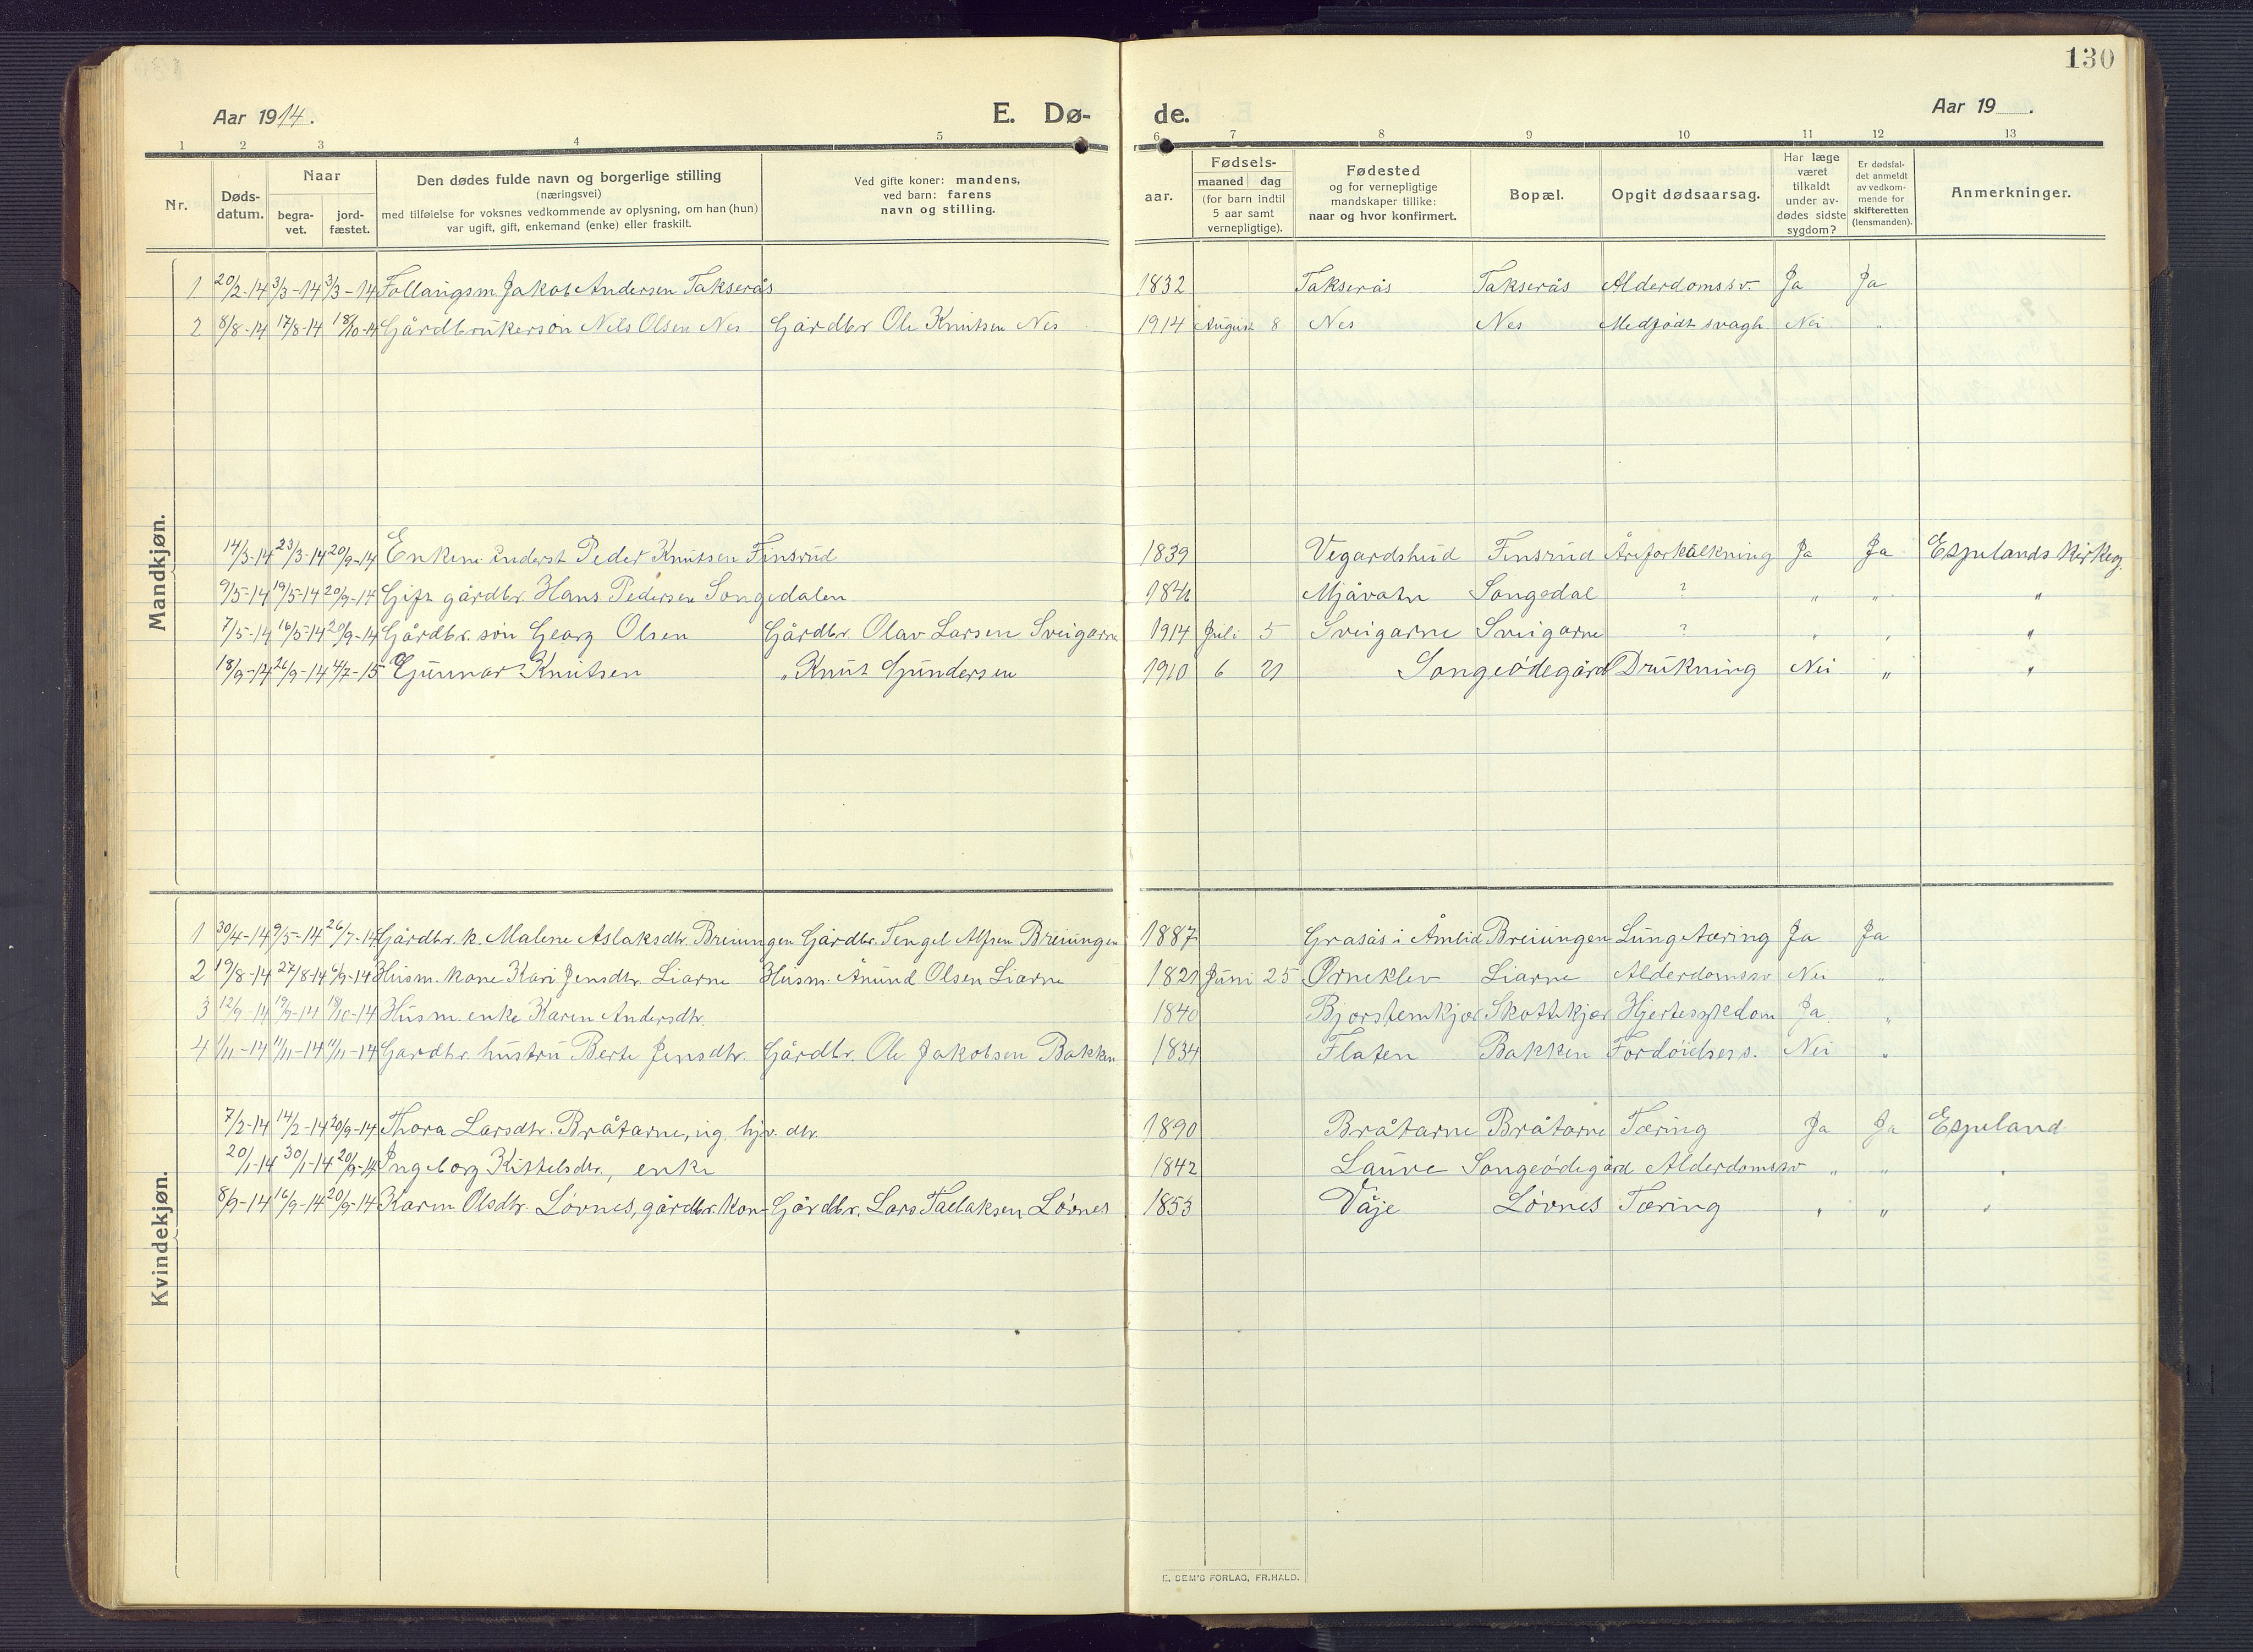 130
Aar 1914. E. Dø- de. Aar 19 .
1 2 3 4 5 6 7 8 9 10 11 12 13
Nr. Døds-datum. Naar begra-vet. jord-fæstet. Den dødes fulde navn og borgerlige stilling (næringsvei) med tilføielse for voksnes vedkommende av oplysning, om han (hun) var ugift, gift, enkemand (enke) eller fraskilt. Ved gifte koner: mandens, ved barn: farens navn og stilling. aar. Fødsels- maaned dag (for barn indtil 5 aar samt vernepligtige). Fødested og for vernepligtige mandskaper tillike: naar og hvor konfirmert. Bopæl. Opgit dødsaarsag. Har læge været tilkaldt under av-dødes sidste sygdom? Er dødsfal-det anmeldt av vedkom-mende for skifteretten (lensmanden). Anmerkninger.
Mandkjøn.
1 20/2-14 3/3-14 3/3-14 Follaugsm Jakob Andersen Takserås 1832 Takserås Takserås Alderdomssv. Ja Ja
2 8/8-14 17/8-14 18/10-14 Gårdbrukersøn Nils Olsen Nes Gårdbr Ole Knutsen Nes 1914 August 8 Nes Nes Medfødt svagh Nei "
14/3-14 23/3-14 20/9-14 Enkem. Peder Knutsen Finsrud 1839 Vegardshud Finsrud Åreforkalkning Ja Ja Espelands Kirkeg.
9/5-14 19/5-14 20/9-14 Gift gårdbr. Hans Pedersen Songedalen Mjåvatn Songedal ? " " "
7/5-14 16/5-14 20/9-14 Gårdbr. søn Georg Olsen Gårdbr. Olav Larsen Sveigarne 1914 Juli 5 Sveigarne Sveigarne ? " " "
18/9-14 26/9-14 4/7-15 Gunnar Knutsen " Knut Gundersen 1910 6 21 Songeødegård Drukning Nei " "
Kvindekjøn.
1 30/4-14 9/5-14 26/7-14 Gårdbr. k. Malene Aslaksdtr. Breiungen Gårdbr. Tengel Alfsen Breiungen 1887 Grasås i Åmlid Breiungen Lungetæring Ja Ja
2 19/8-14 27/8-14 6/9-14 Husm. kone Kari Jensdtr. Liarne Husm. Ånund Olsen Liarne 1821 Juni 25 Ørneklev Liarne Alderdomssv Nei "
3 12/9-14 19/9-14 18/10-14 Husm. enke Karen Andersdtr. 1840 Bjorstemkjær Skottkjær Hjertesykdom Ja "
4 1/11-14 11/11-14 11/11-14 Gardbr. hustru Berte Jensdtr. Gårdbr. Ole Jakobsen Bakken 1834 Flaten Bakken Fordøielses s. Nei "
7/2-14 14/2-14 20/9-14 Thora Larsdtr. Bråtarne, ug. hjv. dtr. 1890 Bråtarne Bråtarne Tæring Ja Ja Espeland
20/1-14 30/1-14 20/9-14 Ingeborg Kittelsdtr., enke 1842 Lauve Songeødegård Alderdomssv " " "
8/9-14 16/9-14 20/9-14 Karen Olsdtr. Løvnes, gårdbr. kon- Gårdbr. Lars Taelaksen Løvnes 1853 Våje Løvnes Tæring " " "
E. SEM'S FORLAG, FR.HALD.